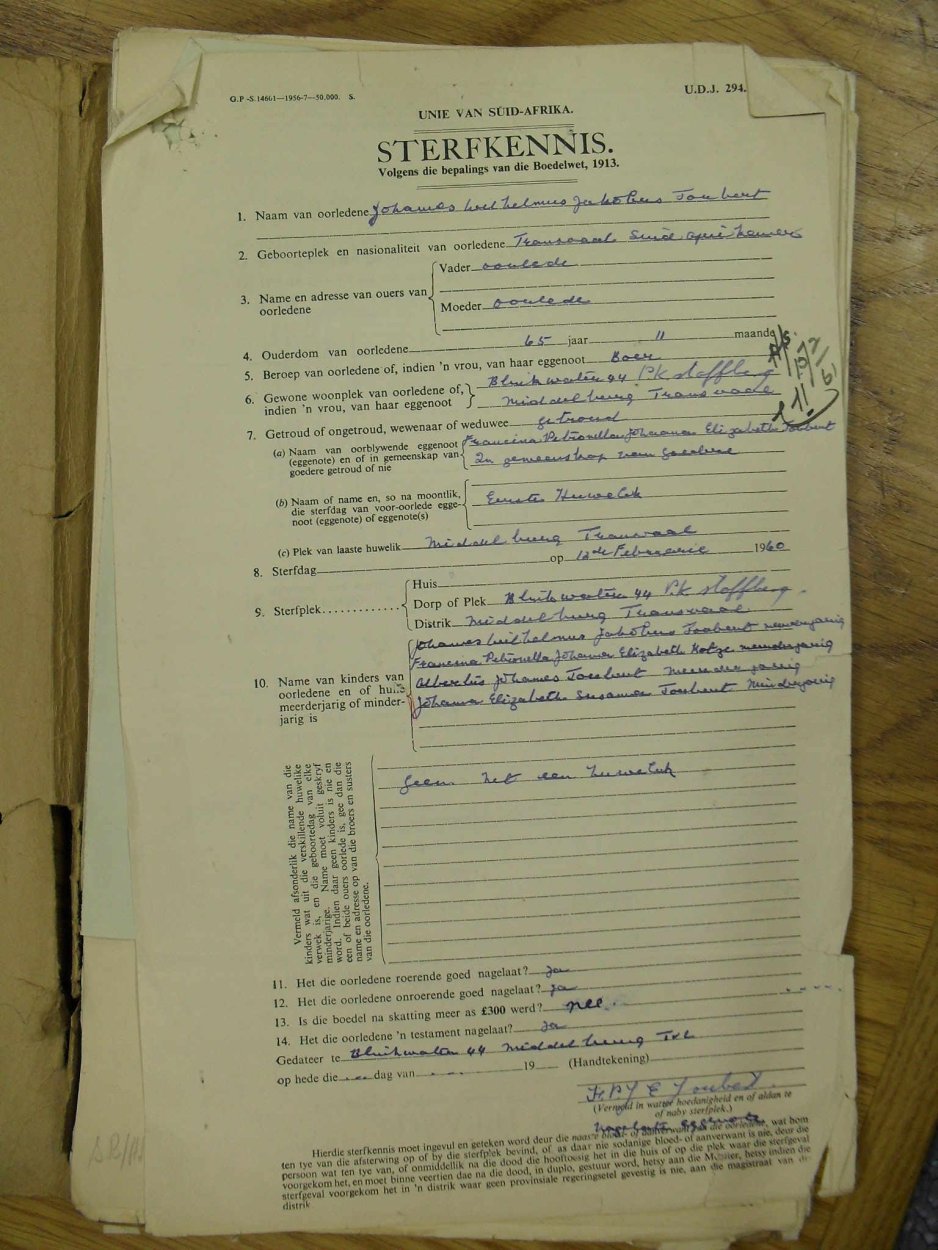 G.P.-S.14661—1956-7—50,000. S.
U.D.J. 294.
UNIE VAN SUID-AFRIKA.
STERFKENNIS.
Volgens die bepalings van die Boedelwet, 1913.
1. Naam van oorledene Johannes Wilhelmus Jakobus Joubert
2. Geboorteplek en nasionaliteit van oorledene Transvaal Suid Afrikaner
3. Name en adresse van ouers van oorledene
Vader oorlede
Moeder oorlede
4. Ouderdom van oorledene 65 jaar 11 maande
5. Beroep van oorledene of, indien 'n vrou, van haar eggenoot Boer
6. Gewone woonplek van oorledene of, indien 'n vrou, van haar eggenoot
Blinkwater 44 PK Stoffberg
Middelburg Transvaal
7. Getroud of ongetroud, wewenaar of weduwee getroud
(a) Naam van oorblywende eggenoot (eggenote) en of in gemeenskap van goedere getroud of nie
Francina Petronella Johanna Elizabeth Joubert
In gemeenskap van goedere
(b) Naam of name en, so na moontlik, die sterfdag van voor-oorlede eggenoot (eggenote) of eggenote(s)
Eerste Huwelik
(c) Plek van laaste huwelik Middelburg Transvaal
8. Sterfdag op 12de Februarie 1960
9. Sterfplek
Huis
Dorp of Plek Blinkwater 44 P.K Stoffberg.
Distrik Middelburg Transvaal
10. Name van kinders van oorledene en of hulle meerderjarig of minderjarig is
Johannes Wilhelmus Jakobus Joubert
Francina Petronella Johanna Elizabeth Kotze
Albertus Johannes Joubert
Johanna Elizabeth Susanna Joubert Minderjarig
Vermeld afsonderlik die name van die
kinders wat uit die verskillende huwelike
verwek is, en die geboortedag van elke
minderjarige. Name moet voluit geskryf
word. Indien daar geen kinders is nie en
een of beide ouers oorlede is, gee dan die
name en adresse op van die broers en susters
van die oorledene.
een huwelik
11. Het die oorledene roerende goed nagelaat? Ja
12. Het die oorledene onroerende goed nagelaat? Ja
13. Is die boedel na skatting meer as £300 werd? nee.
14. Het die oorledene 'n testament nagelaat? Ja
Gedateer te Blinkwater 44 Middelburg Tvl
op hede die dag van 19 (Handtekening)
F P J E Joubert.
(Vermeld in watter hoedanigheid en of aldan te
of naby sterfplek.)
Nagelate eggenote
Hierdie sterfkennis moet ingevul en geteken word deur die naaste bloed- of aanverwant van die oorledene, wat hom
ten tye van die afsterwing op of by die sterfplek bevind, of, as daar nie sodanige bloed- of aanverwant is nie, deur die
persoon wat ten tye van, of onmiddellik na die dood die hooftoesig het in die huis of op die plek waar die sterfgeval
voorgekom het, en moet binne veertien dae na die dood, in duplo, gestuur word, hetsy aan die Meester, hetsy indien die
sterfgeval voorgekom het in 'n distrik waar geen provinsiale regeringsetel gevestig is nie, aan die magistraat van die
distrik